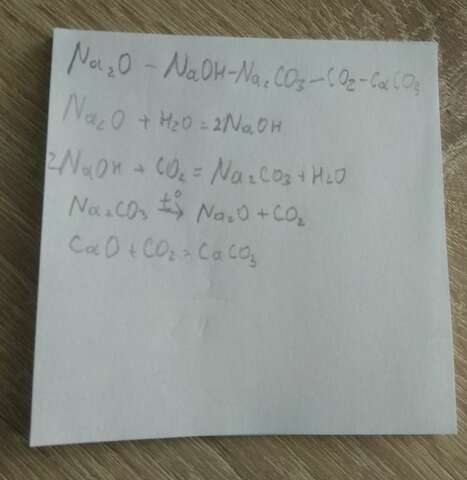 Na₂O - NaOH-Na₂CO₃-CO₂-CaCO₃
Na₂O + H₂O = 2NaOH
2NaOH + CO₂ = Na₂CO₃ + H₂O
Na₂CO₃ t° → Na₂O + CO₂
CaO + CO₂ = CaCO₃